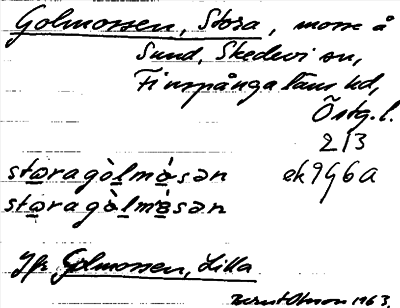 Golmossen, Stora, mosse å
Sund, Skedevi sn,
Finspånga läns hd,
Östg.l.
213
staragòlmósən ek9g6a
staragòlmósən
Jfr Golmossen, Lilla
Bernt Olsson 1963.